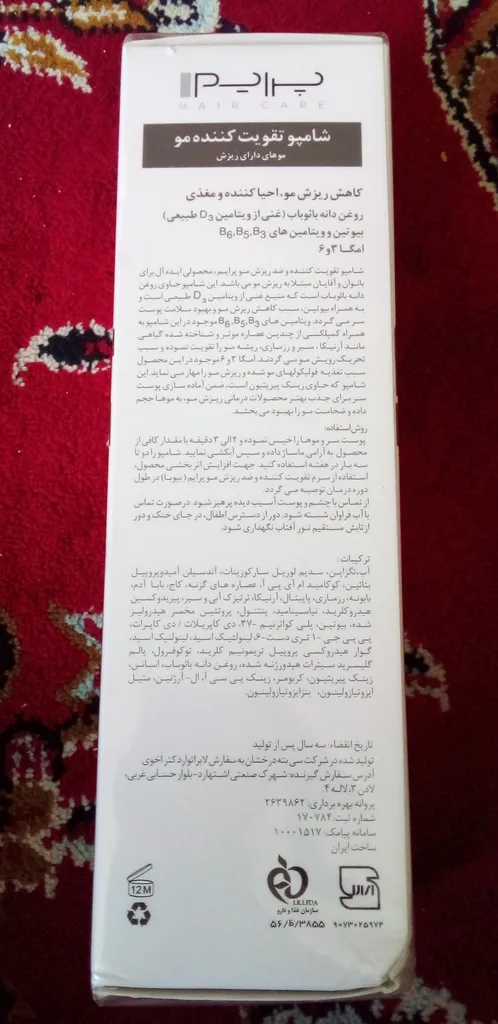 پرایم
HAIR CARE
شامپو تقویت کننده مو
موهای دارای ریزش
کاهش ریزش مو، احیا کننده و مغذی
روغن دانه بائوباب (غنی از ویتامین D3 طبیعی)
بیوتین و ویتامین های B6،B5،B3
امگا ۳ و ۶
شامپو تقویت کننده و ضد ریزش مو پرایم، محصولی ایده آل برای
بانوان و آقایان مبتلا به ریزش مو می باشد. این شامپو حاوی روغن
دانه بائوباب است که منبع غنی از ویتامین D3 طبیعی است و
به همراه بیوتین، سبب کاهش ریزش مو و بهبود سلامت پوست
سر می گردد. ویتامین های B6،B5،B3 موجود در این شامپو به
همراه کمپلکسی از چندین عصاره موثر و شناخته شده گیاهی
مانند آرنیکا، سیر و رزماری، ریشه مو را تقویت نموده و سبب
تحریک رویش مو می گردند. امگا ۳ و ۶ موجود در این محصول
سبب تغذیه فولیکولهای مو شده و ریزش مو را مهار می نماید. این
شامپو که حاوی زینک پیریتیون است، ضمن آماده سازی پوست
سر برای جذب بهتر محصولات درمانی ریزش مو، به موها حجم
داده و ضخامت مو را بهبود می بخشد.
روش استفاده:
پوست سر و موها را خیس نموده و ۲ الی ۳ دقیقه با مقدار کافی از
محصول به آرامی ماساژ داده و سپس آبکشی نمایید. شامپو را دو تا
سه بار در هفته استفاده کنید. جهت افزایش اثر بخشی محصول،
استفاده از سرم تقویت کننده و ضد ریزش مو پرایم (بیوبا) در طول
دوره درمان توصیه می گردد.
از تماس با چشم و پوست آسیب دیده پرهیز شود. در صورت تماس
با آب فراوان شسته شود. دور از دسترس اطفال، در جای خنک و دور
از تابش مستقیم نور آفتاب نگهداری شود.
ترکیبات:
آب، تگزاپن، سدیم لوریل سارکوزینات، آندسیلن آمیدوپروپیل
بتائین، کوکامید ام آی پی آ، عصاره های گزنه، کاج، بابا آدم،
بابونه، رزماری، پاپیتال، آرنیکا، ترتیزک آبی و سیر، پیریدوکسین
هیدروکلرید، نیاسینامید، پنتنول، پروتئین مخمر هیدرولیز
شده، بیوتین، پلی کواترنیم -۳۷، دی کاپریلات / دی کاپرات،
پی پی جی -۱ تری دست-۶، لینولئیک اسید، لینولنیک اسید،
گوار هیدروکسی پروپیل تریمونیم کلرید، توکوفرول، پالم
گلیسرید سیترات هیدروژنه شده، روغن دانه بائوباب، اسانس،
زینک پیریتیون، کربومر، زینک پی سی آ، ال- آرژنین، متیل
ایزوتیازولینون، بنزایزوتیازولینون.
تاریخ انقضاء: سه سال پس از تولید
تولید شده در شرکت سی بته درخشان به سفارش لابراتوار دکتر اخوی
آدرس سفارش گیرنده: شهرک صنعتی اشتهارد- بلوار حسابی غربی،
لادن ۳، لاله ۴.
پروانه بهره برداری: ۲۶۳۹۸۶۲
شماره ثبت: ۱۷۰۷۸۴
سامانه پیامک: ۱۰۰۰۱۵۱۷
ساخت ایران
12M
IR.I.FDA
سازمان غذا و دارو
۵۶/ظ/۳۸۵۵
۹۰۷۳۰۲۵۹۷۴